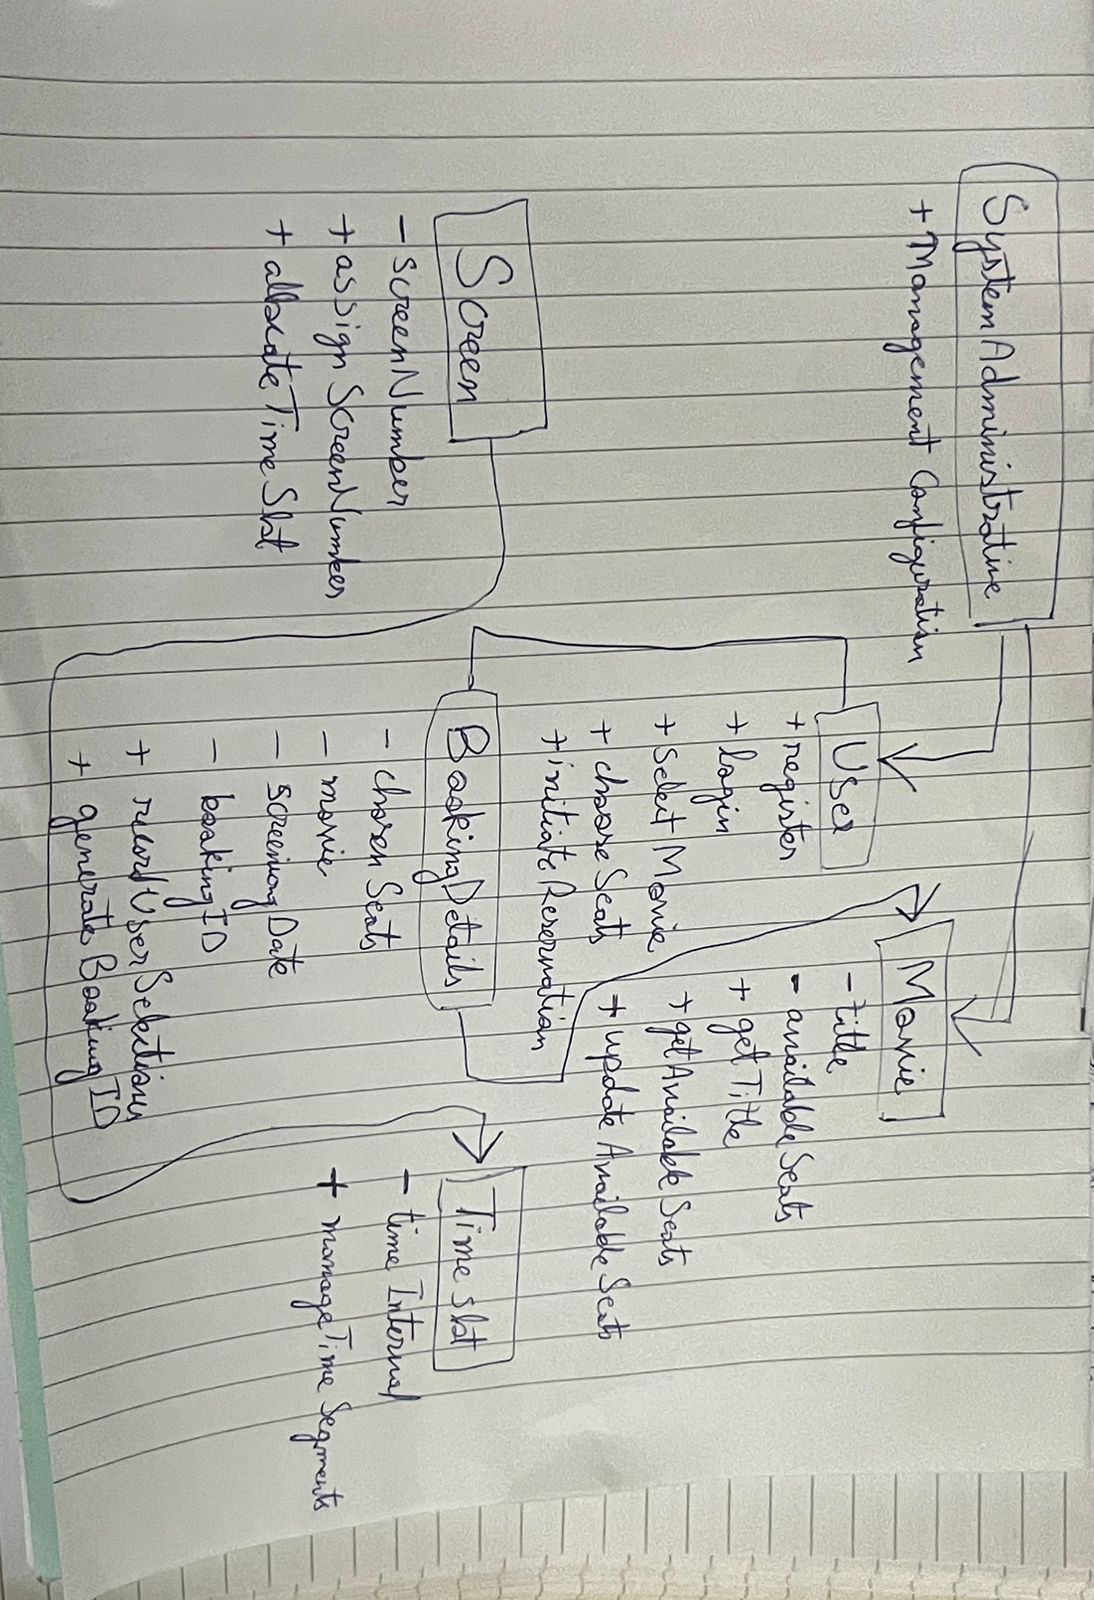 SystemAdministrative
+ Management Configuration
User
+ register
+ login
+ Select Movie
+ choose Seats
+ initiate Reservation
Movie
- title
- available Seats
+ get Title
+ get Available Seats
+ update Available Seats
Screen
- screenNumber
+ assign ScreenNumber
+ allocate Time Slot
BookingDetails
- chosen Seats
- movie
- screeniong Date
- bookingID
+ record User Selections
+ generate Booking ID
Time slot
- time Interval
+ manage Time Segments